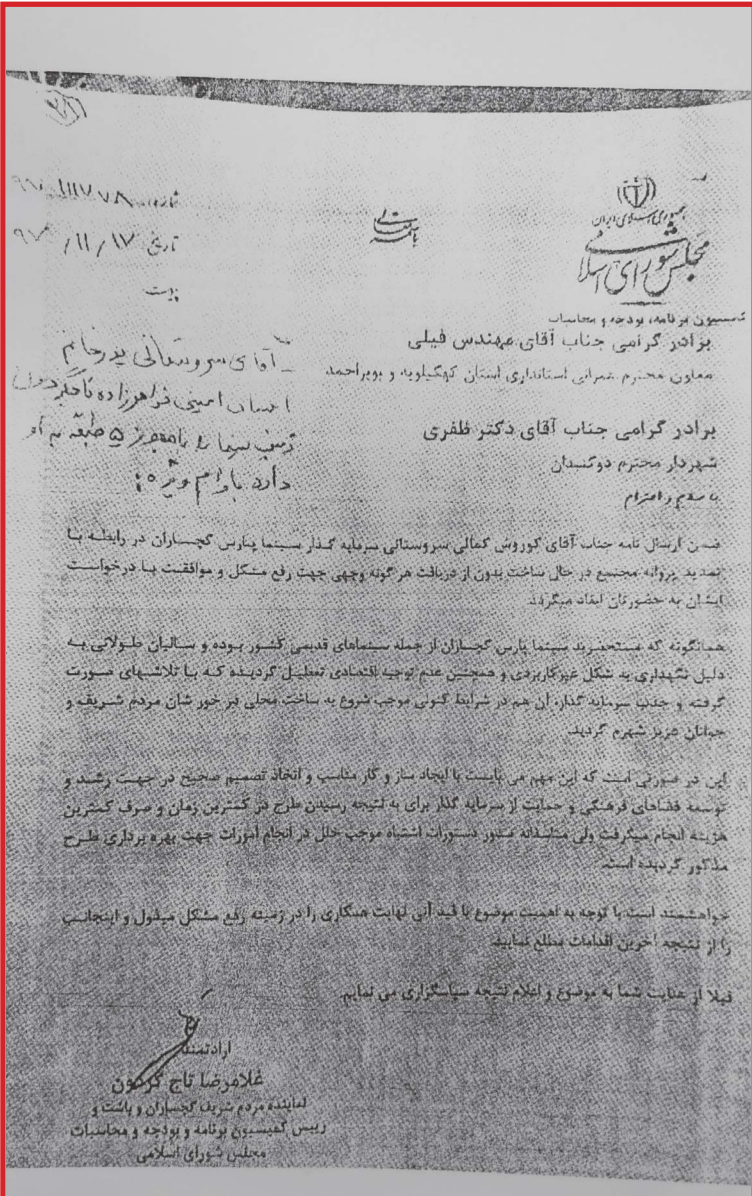 جمهوری اسلامی ایران
مجلس شورای اسلامی
کمیسیون برنامه، بودجه و محاسبات
باسمه تعالی
شماره
تاریخ ۹۷/۱۱/۱۷
پیوست
برادر گرامی جناب آقای مهندس فیلی
معاون محترم عمرانی استانداری استان کهگیلویه و بویراحمد
برادر گرامی جناب آقای دکتر ظفری
شهردار محترم دوگنبدان
با سلام و احترام
آقای سروستانی پدر خانم
احسان امینی فر
سینما را با مجوز ۵ طبقه به او
داده با وام ویژه
ضمن ارسال نامه جناب آقای کوروش کمالی سروستانی سرمایه گذار سینما پارس گچساران در رابطه با
تمدید پروانه مجتمع در حال ساخت بدون از دریافت هر گونه وجهی جهت رفع مشکل و موافقت با درخواست
ایشان به حضورتان ایفاد میگردد.
همانگونه که مستحضرید سینما پارس گچساران از جمله سینماهای قدیمی کشور بوده و سالیان طولانی به
دلیل نگهداری به شکل غیرکاربردی و همچنین عدم توجیه اقتصادی تعطیل گردیده که با تلاشهای صورت
گرفته و جذب سرمایه گذار، آن هم در شرایط کنونی موجب شروع به ساخت محلی در خور شان مردم شریف و
جوانان عزیز شهرم گردید.
این در صورتی است که این مهم می بایست با ایجاد ساز و کار مناسب و اتخاذ تصمیم صحیح در جهت رشد و
توسعه فضاهای فرهنگی و حمایت از سرمایه گذار برای به نتیجه رسیدن طرح در کمترین زمان و صرف کمترین
هزینه انجام میگرفت ولی متاسفانه صدور دستورات اشتباه موجب خلل در انجام امورات جهت بهره برداری طرح
مذکور گردیده است.
خواهشمند است با توجه به اهمیت موضوع با قید آنی نهایت همکاری را در زمینه رفع مشکل مبذول و اینجانب
را از نتیجه آخرین اقدامات مطلع نمایید.
قبلا از عنایت شما به موضوع و اعلام نتیجه سپاسگزاری می نمایم.
ارادتمند
غلامرضا تاج گردون
نماینده مردم شریف گچساران و باشت و
رییس کمیسیون برنامه و بودجه و محاسبات
مجلس شورای اسلامی